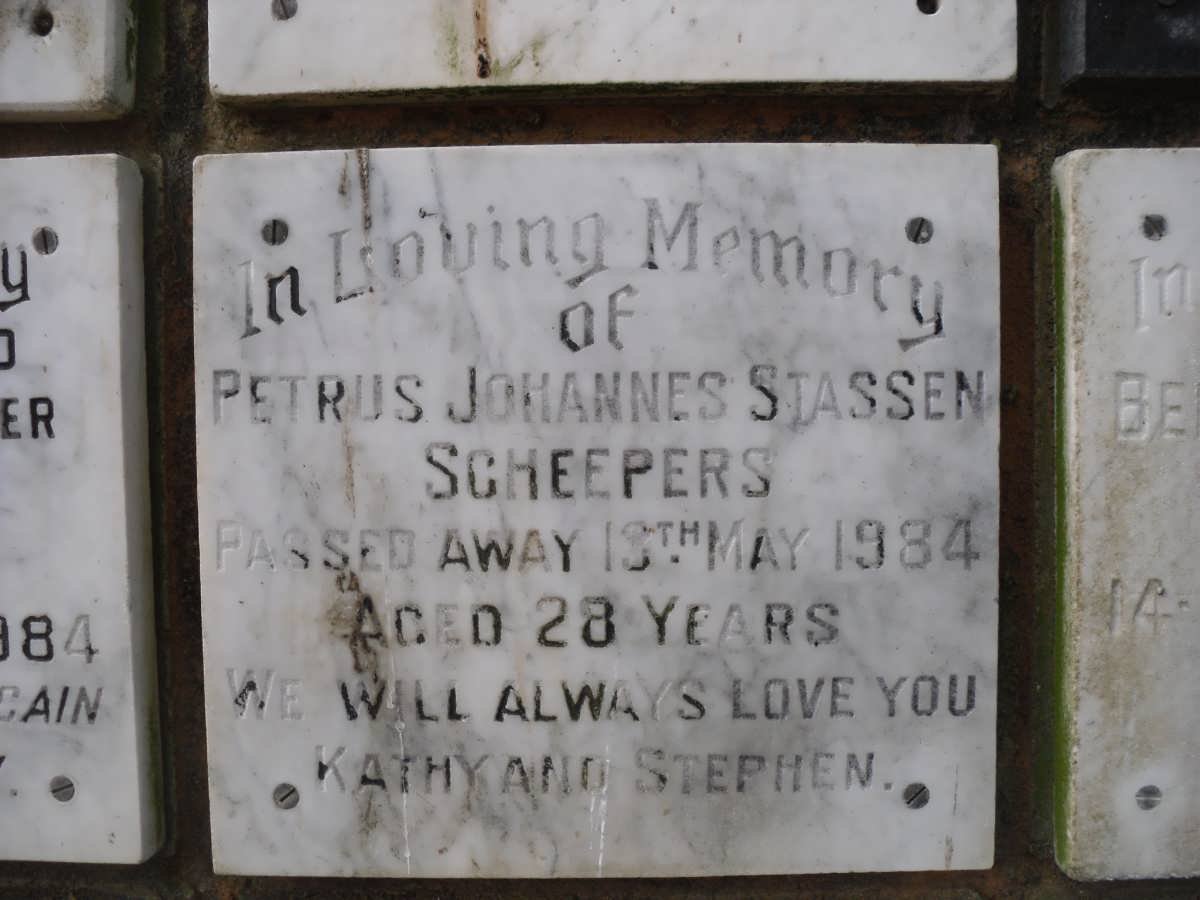 In Loving Memory
of
PETRUS JOHANNES STASSEN
SCHEEPERS
PASSED AWAY 13TH MAY 1984
AGED 28 YEARS
WE WILL ALWAYS LOVE YOU
KATHY AND STEPHEN.
y
ER
984
GAIN
In
BE
14-